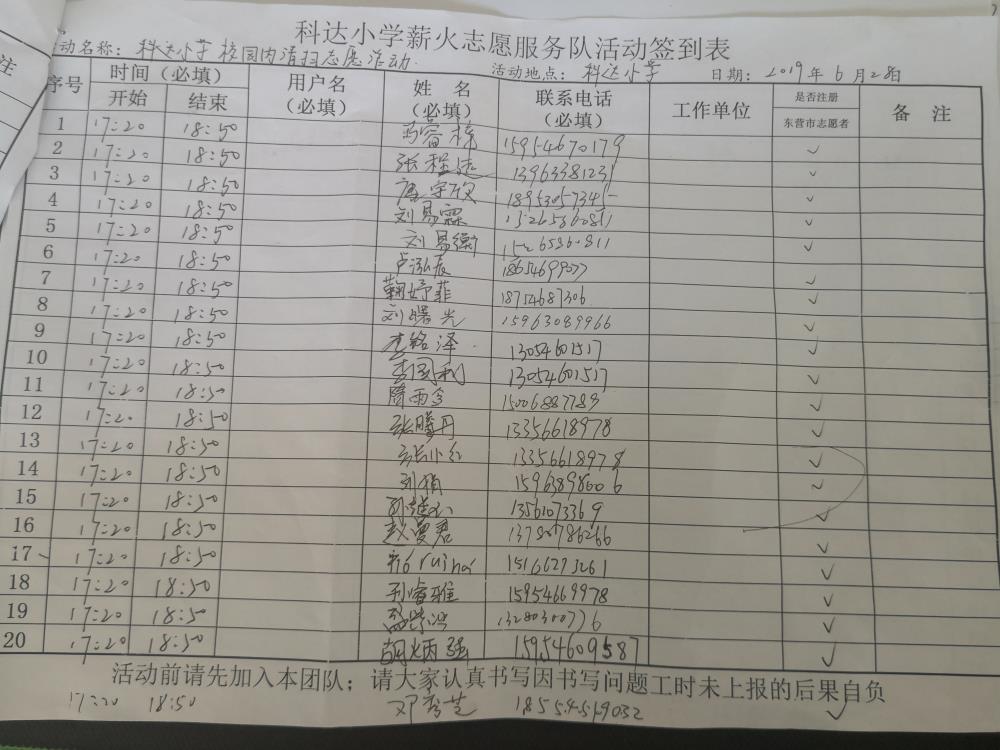 科达小学薪火志愿服务队活动签到表
活动名称：科达小学校园内清扫志愿活动. 活动地点：科达小学 日期：2019年6月28日
序号 时间（必填） 用户名（必填） 姓名（必填） 联系电话（必填） 工作单位 是否注册 备注
开始 结束 东营市志愿者
1 17:20 18:50 15954670179 ✓
2 17:20 18:50 张程远 13963381231 ✓
3 17:20 18:50 18953057345 ✓
4 17:20 18:50 刘易霖 13265360811 ✓
5 17:20 18:50 刘易衡 ✓
6 17:20 18:50 卢泓辰 18654699077 ✓
7 17:20 18:50 鞠妤菲 18754687306 ✓
8 17:20 18:50 刘曙光 15963089966 ✓
9 17:20 18:50 李铭泽 13054601517 ✓
10 17:20 18:50 李国利 13054601517 ✓
11 17:20 18:50 15006887789 ✓
12 17:20 18:50 张腾丹 13356618978 ✓
13 17:20 18:50 13356618978 ✓
14 17:20 18:50 15963898006 ✓
15 17:20 18:50 13561073369 ✓
16 17:20 18:50 赵曼君 ✓
17 17:20 18:50 15166273261 ✓
18 17:20 18:50 孙睿雅 15954669978 ✓
19 17:20 18:50 13280300776 ✓
20 17:20 18:50 胡炳强 15954609587 ✓
活动前请先加入本团队；请大家认真书写因书写问题工时未上报的后果自负
17:20 18:50 邓秀芝 18554519032 ✓